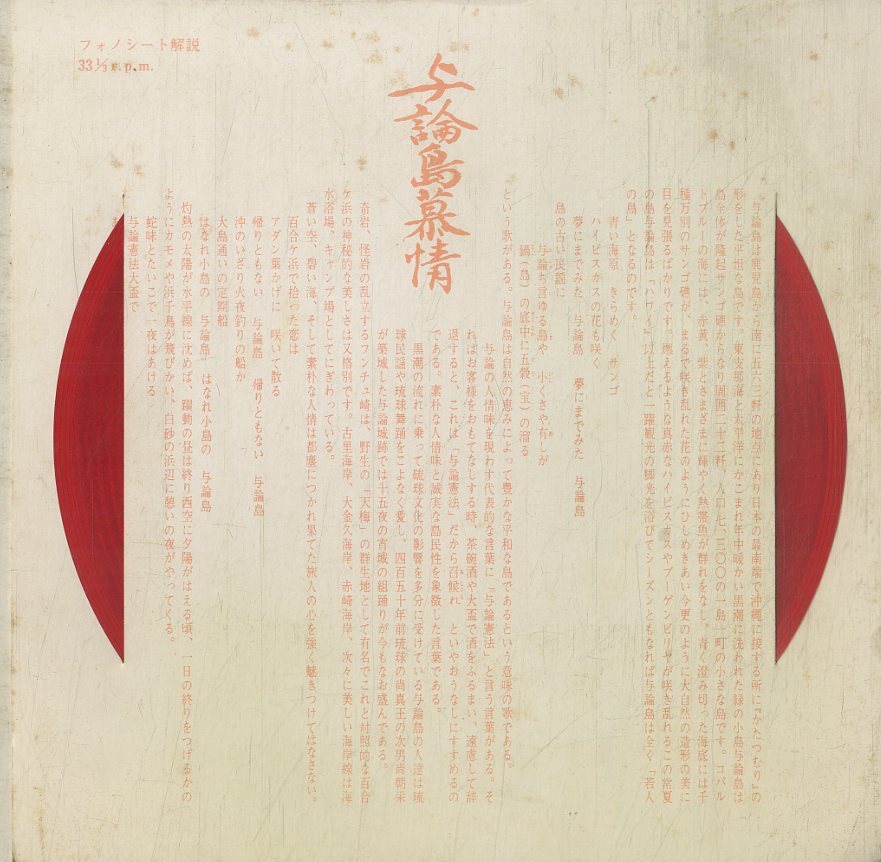 フォノシート解説
33⅓ r.p.m.
与論島慕情
与論島は鹿児島から南に五六三粁の地点にあり日本の最南端で沖縄に接する所に『かたつむり』の
形をした平坦な島です。東支那海と太平洋にかこまれ年中暖かい黒潮に洗われた緑の小島与論島は
島全体が隆起サンゴ礁からなり周囲二十二粁、人口七、三〇〇の一島一町の小さな島です。コバル
トブルーの海には、赤黄、紫とさまざまに輝やく熱帯魚が群れをなし、青く澄み切った海底には千
種万別のサンゴ礁が、まるで咲き乱れた花のようにひしめきあい今更のように大自然の造形の美に
目を見張るばかりです。燃えるような真赤なハイビスカスやブーゲンビリヤが咲き乱れるこの常夏
の島与論島は「ハワイ」以上だと一躍観光の脚光を浴びてシーズンともなれば与論島は全く「若人
の島」となるのです。
青い海原 きらめく サンゴ
ハイビスカスの花も咲く
夢にまでみた 与論島 夢にまでみた 与論島
島の古い民謡に
与論ち言ゆる島や 小くさや有しが
鍋(島)の底中に五穀(宝)の溜る
という歌がある。与論島は自然の恵みによって豊かな平和な島であるという意味の歌である。
与論の人情味を現わす代表的な言葉に「与論憲法」と言う言葉がある。そ
れはお客様をおもてなしする時、茶碗酒や大盃で酒をふるまい、遠慮して辞
退すると、これは「与論憲法」だから召候れ といやおうなしにすすめるの
である。素朴な人情味と誠実な島民性を象徴した言葉である。
黒潮の流れに乗って琉球文化の影響を多分に受けている与論島の人達は琉
球民謡や琉球舞踊をこよなく愛し、四百五十年前琉球の尚真王の次男尚朝栄
が築城した与論城跡では十五夜の宵城の組踊りが今もなお盛んである。
奇岩、怪岩の乱立するフンチュ崎は、野生の「天梅」の群生地として有名でこれと対照的な百合
ケ浜の神秘的な美しさは又格別です。古里海岸、大金久海岸、赤崎海岸、次々に美しい海岸線は海
水浴場、キャンプ場としてにぎわっている。
蒼い空、碧い海、そして素朴な人情は都塵につかれ果てた旅人の心を強く魅きつけてはなさない。
百合ケ浜で拾った恋は
アダン葉かげに 咲いて散る
帰りともない 与論島 帰りともない 与論島
沖のいさり火夜釣りの船か
大島通いの定期船
はなれ小島の 与論島 はなれ小島の 与論島
灼熱の太陽が水平線に沈めば、躍動の昼は終り西空に夕陽がはえる頃、一日の終りをつげるかの
ようにカモメや浜千鳥が飛びかい、白砂の浜辺に憩いの夜がやってくる。
蛇味とたいこで一夜はあける
与論憲法大盃で